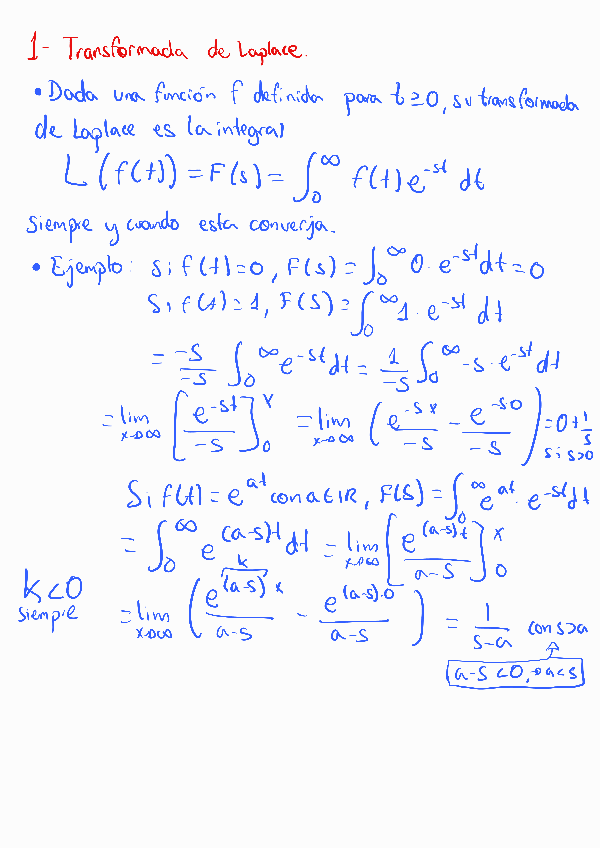 1- Transformada de Laplace.
• Dada una función f definida para t≥0, su transformada
de Laplace es la integral
L(f(t)) = F(s) = ∫₀^∞ f(t) e^-st dt
siempre y cuando esta converja.
• Ejemplo: Si f(t)=0, F(s) = ∫₀^∞ 0·e^-st dt = 0
Si f(t)=1, F(s) = ∫₀^∞ 1·e^-st dt
= -s/-s ∫₀^∞ e^-st dt = 1/-s ∫₀^∞ -s·e^-st dt
= lim x→∞ [e^-st/-s]₀^x = lim x→∞ (e^-sx/-s - e^-s0/-s) = 0 + 1/s si s>0
Si f(t) = e^at con a∈ℝ, F(s) = ∫₀^∞ e^at · e^-st dt
= ∫₀^∞ e^(a-s)t dt = lim x→∞ [e^(a-s)t/a-s]₀^x
k<0 siempre
k
= lim x→∞ (e^(a-s)x/a-s - e^(a-s)·0/a-s) = 1/s-a con s>a
a-s<0, → a<s